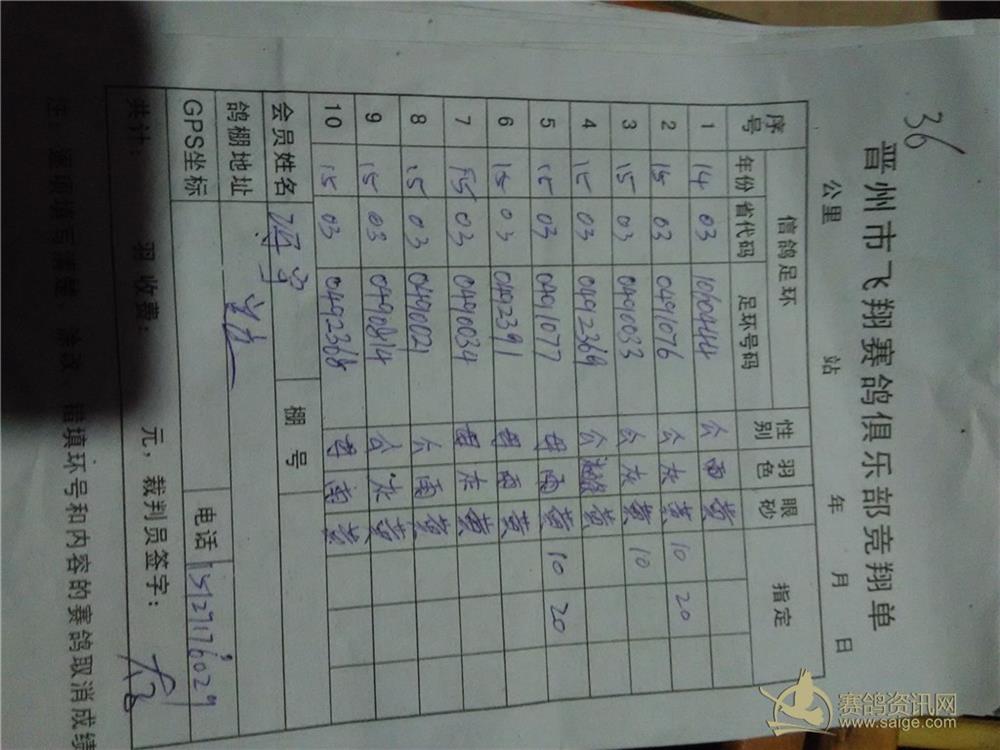 36
晋州市飞翔赛鸽俱乐部竞翔单
公里 站 年 月 日
序号 信鸽足环 性别 羽色 眼砂 指定
年份 省代码 足环号码
1 14 03 公 雨 黄
2 15 03 0491076 公 灰 黄 10 20
3 15 03 0490033 公 灰 黄 10
4 15 03 0492369 公 黄
5 15 03 0491077 母 雨 黄 10 20
6 15 03 0492391 母 雨 黄
7 15 03 0490034 母 灰 黄
8 15 03 0490021 公 雨 黄
9 15 03 公 灰 黄
10 15 03 0492368 母 雨 黄
会员姓名 棚号
鸽棚地址 电话
GPS坐标
共计: 羽收费: 元,裁判员签字:
注 逐项填写清楚 涂改、错填环号和内容的赛鸽取消成绩
赛鸽资讯网
www.saige.com